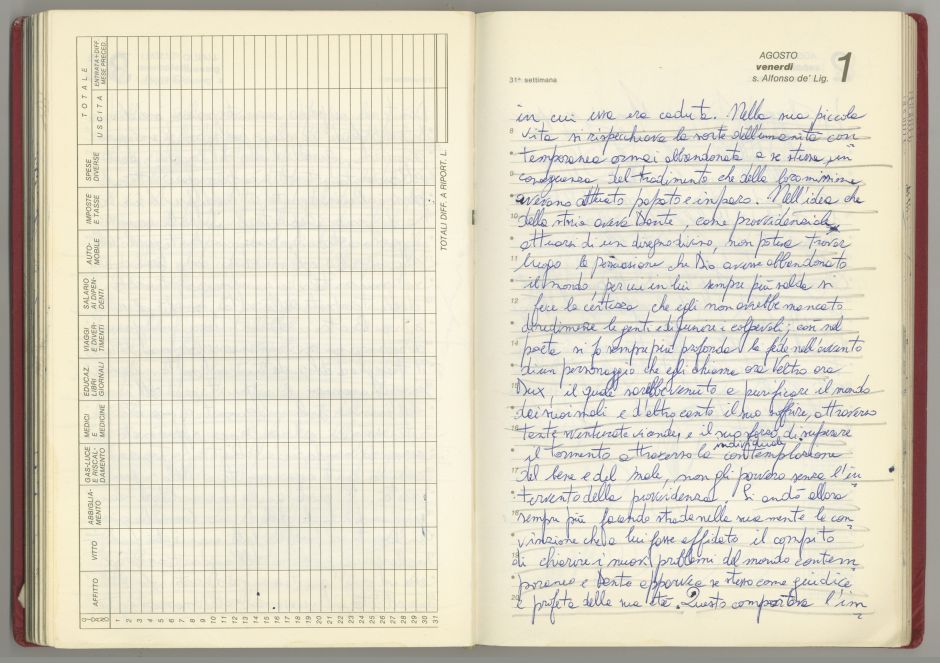 TOTALE
ENTRATA+DIFF.
MESE PRECED.
USCITA
SPESE
DIVERSE
IMPOSTE
E TASSE
AUTO-
MOBILE
SALARIO
AI DIPEN-
DENTI
VIAGGI
E DIVER-
TIMENTI
EDUCAZ.
LIBRI
GIORNALI
MEDICI
E
MEDICINE
GAS-LUCE
E RISCAL-
DAMENTO
ABBIGLIA-
MENTO
VITTO
AFFITTO
1 2 3 4 5 6 7 8 9 10 11 12 13 14 15 16 17 18 19 20 21 22 23 24 25 26 27 28 29 30 31
TOTALI DIFF. A RIPORT. L.
31ª settimana
AGOSTO
venerdì
s. Alfonso de' Lig.
1
in cui essa era caduta. Nella sua piccola
vita si rispecchiava la sorte dell'umanità con
temporanea ormai abbandonata a se stessa, in
conseguenza del tradimento che della loro missione
avevano attuato papato e impero. Nell'idea che
della storia aveva Dante, come provvidenziale
attuarsi di un disegno divino, non poteva trovar
luogo la persuasione che Dio avesse abbandonato
il mondo, per cui in lui sempre più salda si
fece la certezza che egli non avrebbe mancato
di redimere le genti e di punire i colpevoli; così nel
poeta si fa sempre più profonda la fede nell'avvento
di un personaggio che egli chiama ora Veltro ora
Dux, il quale sarebbe venuto a purificare il mondo
dai suoi mali e d'altro canto il suo soffrire, attraverso
tante sventurate vicende, e il suo sforzo di superare
il tormento attraverso la individuale contemplazione
del bene e del male, non gli parvero senza l'in
tervento della provvidenza. Si andò allora
sempre più facendo strada nella sua mente la con
vinzione che a lui fosse affidato il compito
di chiarire i nuovi problemi del mondo contem
poraneo e Dante appariva se stesso come giudice
e profeta della sua età. Questo comportava l'im
8
9
10
11
12
13
14
15
16
17
18
19
20